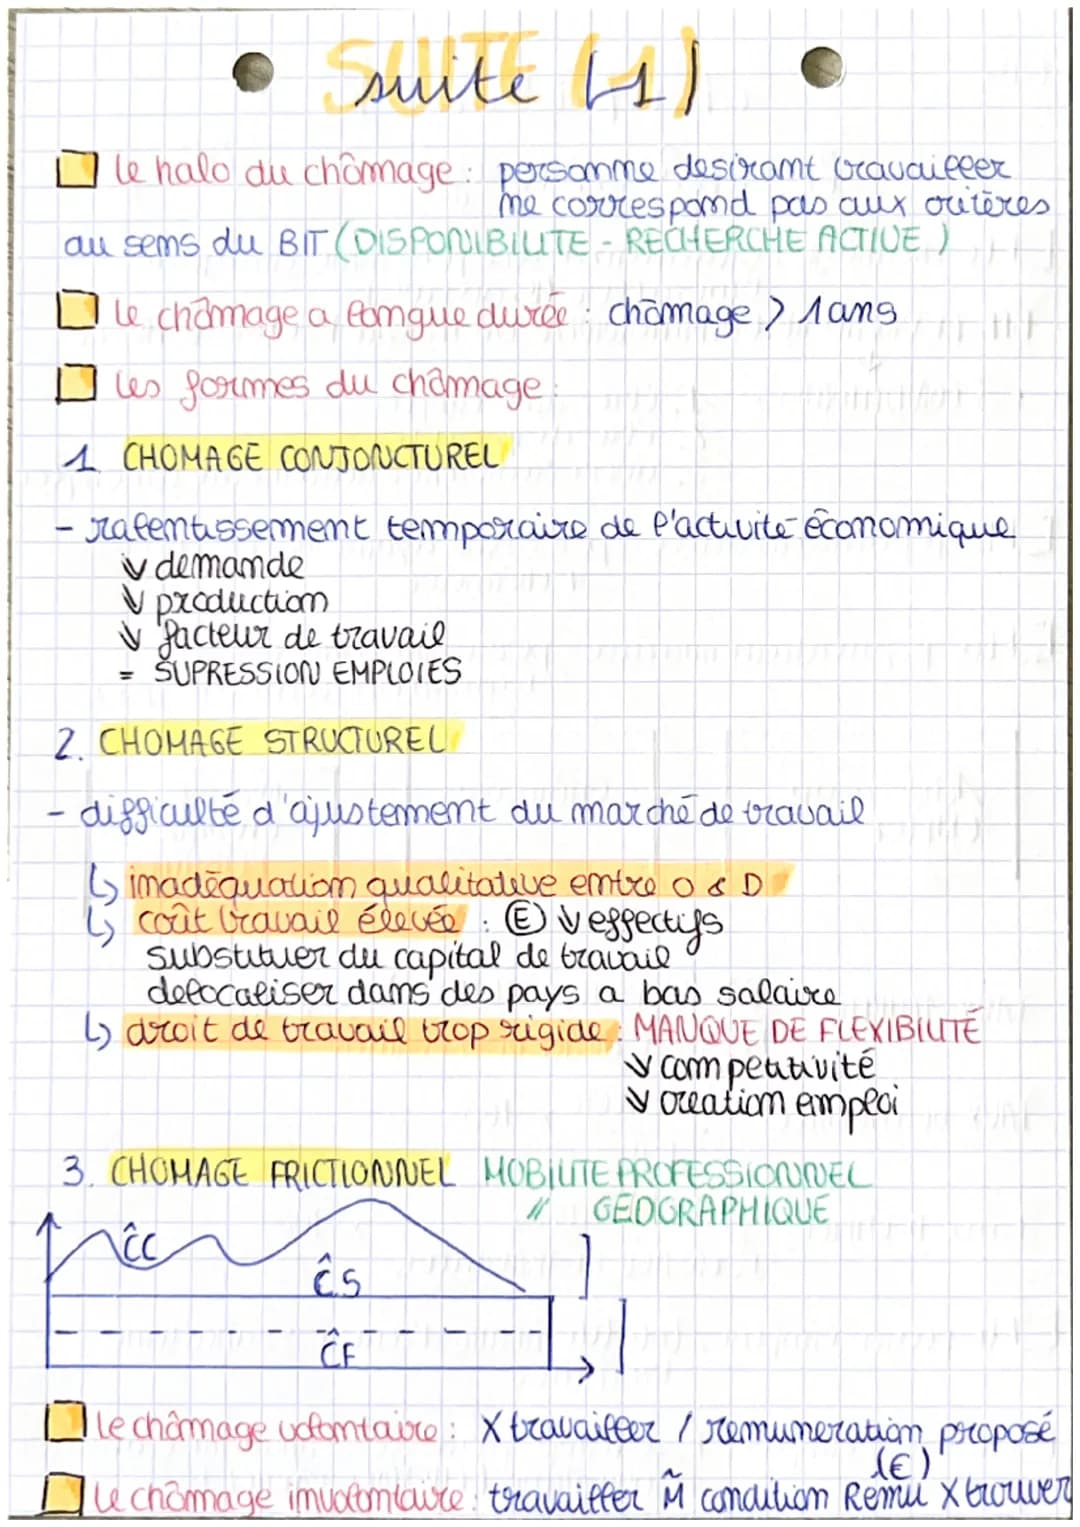 SUITE (1)
suite (1)
le halo du chômage : personne desirant travailler
ne correspond pas aux critères
au sens du BIT (DISPONIBILITE - RECHERCHE ACTIVE)
le chômage a longue durée : chômage > 1 ans
les formes du chômage :
1 CHOMAGE CONJONCTUREL
- ralentissement temporaire de l'activité économique
↓ demande
↓ production
↓ facteur de travail
= SUPRESSION EMPLOIES
2. CHOMAGE STRUCTUREL
- difficulté d'ajustement du marché de travail
↳ inadéquation qualitative entre O & D
↳ coût travail élevée : (E) ↓ effectifs
substituer du capital de travail
delocaliser dans des pays a bas salaire
↳ droit de travail trop rigide : MANQUE DE FLEXIBILITÉ
↓ competitivité
↓ creation emploi
3. CHOMAGE FRICTIONNEL MOBILITE PROFESSIONNEL
// GEOGRAPHIQUE
ĈC
ĈS
ĈF
le chômage volontaire : X travailler / remuneration proposé
(€)
Le chômage involontaire : travailler M̃ condition Remu X trouver